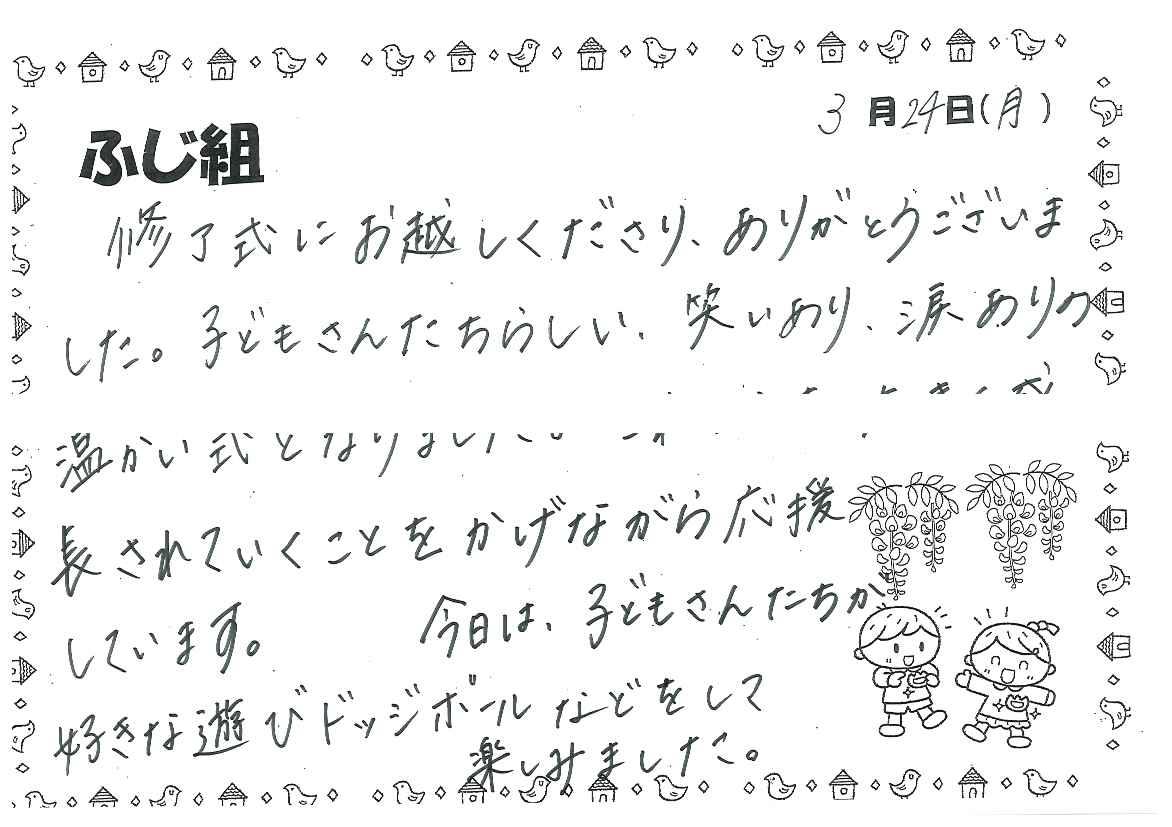 3月24日(月)
ふじ組
修了式にお越しくださり、ありがとうございま
した。子どもさんたちらしい、笑いあり、涙ありの
温かい式となりました。
長されていくことをかげながら応援
しています。 今日は、子どもさんたちが
好きな遊びドッジボールなどをして
楽しみました。